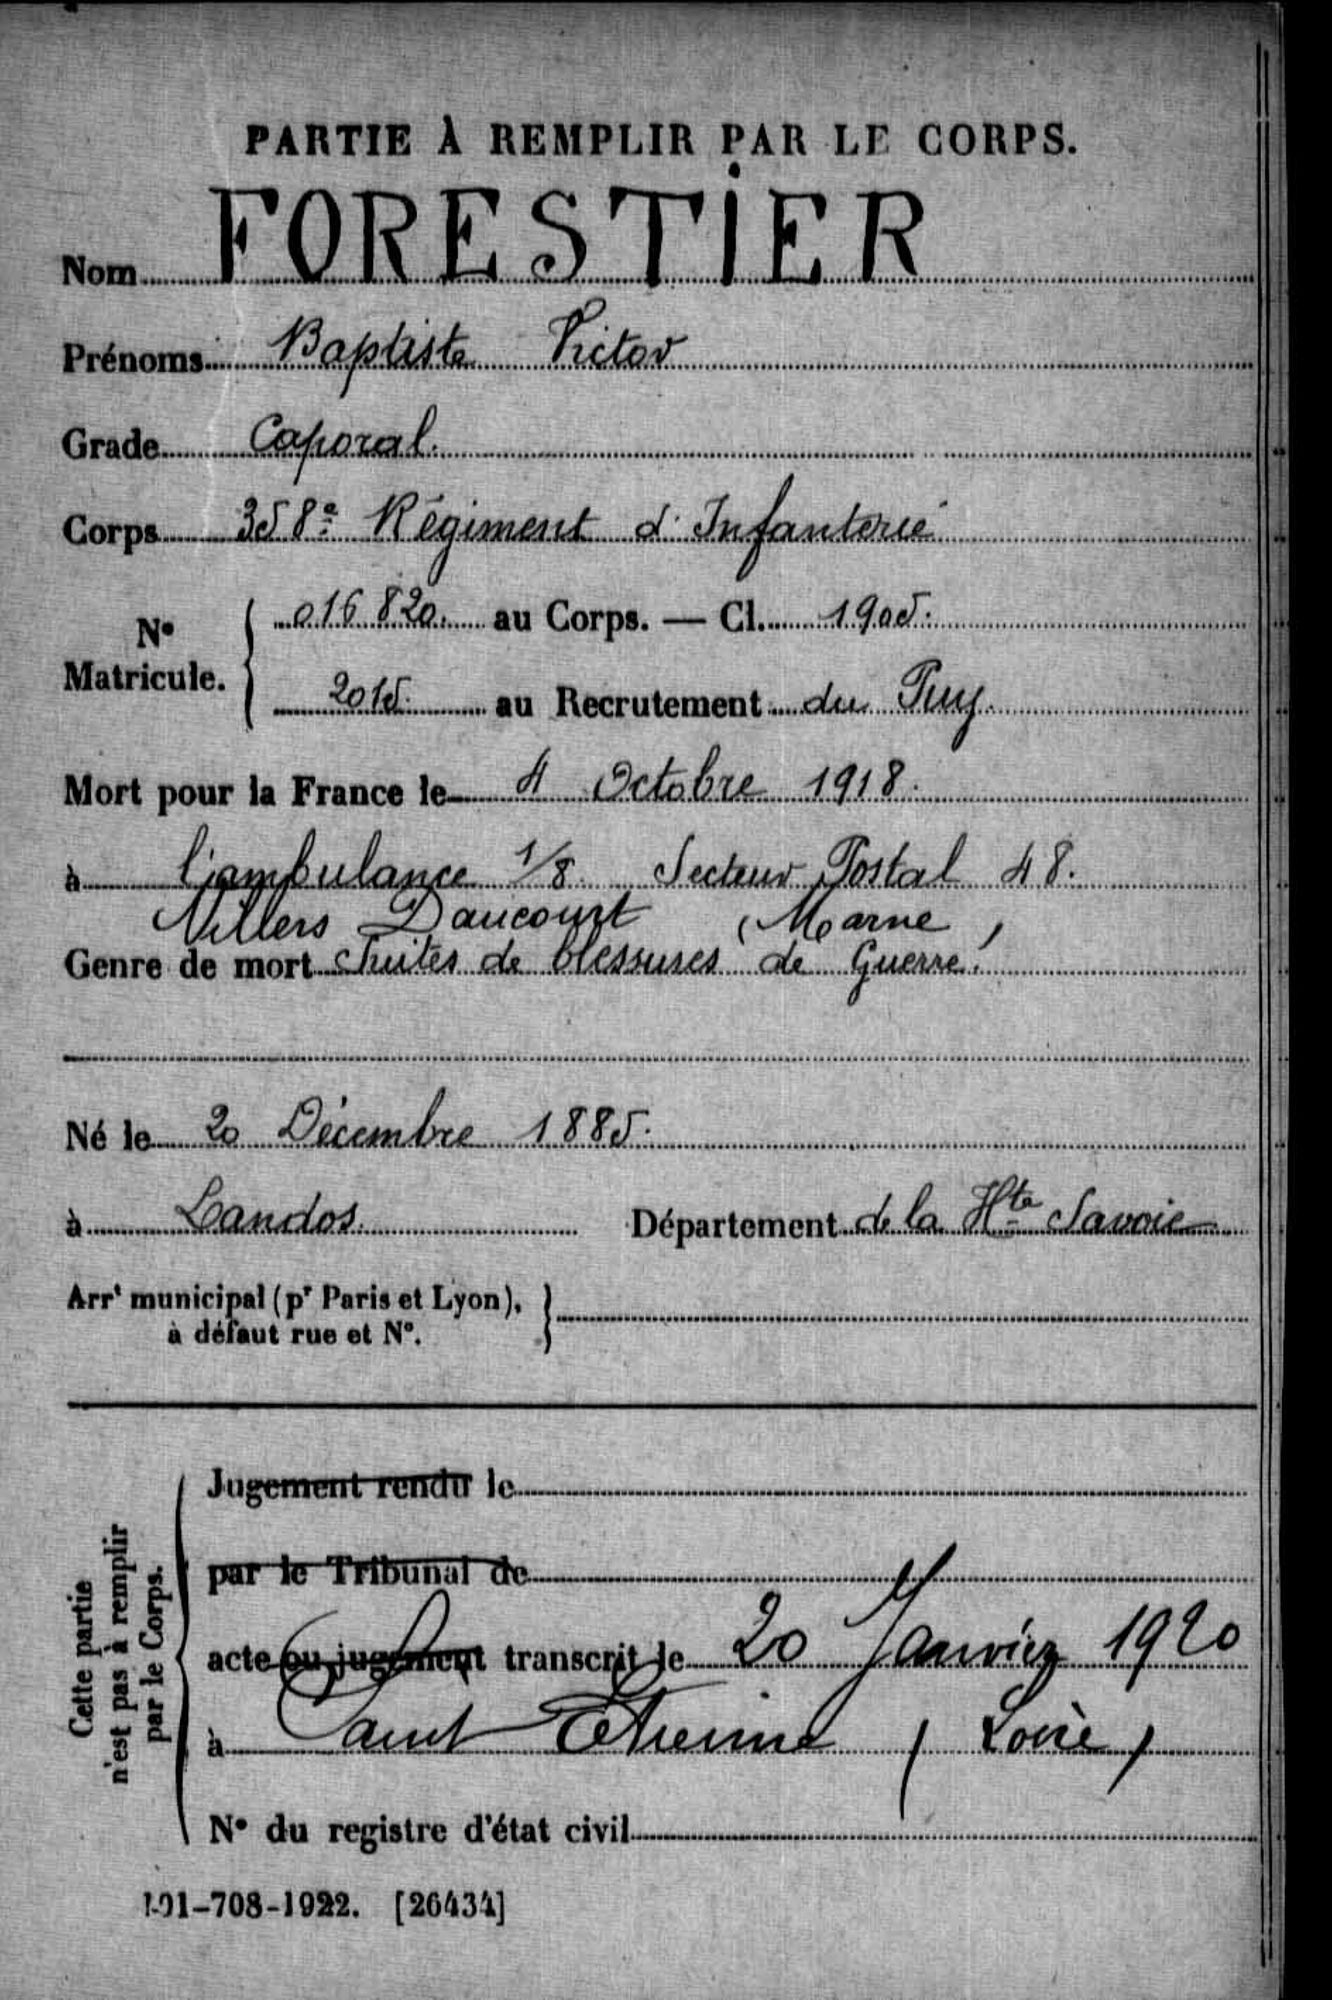 PARTIE À REMPLIR PAR LE CORPS.
Nom FORESTIER
Prénoms Baptiste Victor
Grade Caporal.
Corps 358e Régiment d'Infanterie
N° Matricule. 016 820. au Corps. — Cl. 1905.
2015. au Recrutement du Puy.
Mort pour la France le 4 Octobre 1918.
à l'ambulance 1/8 Secteur Postal 48.
Villers Daucourt (Marne)
Genre de mort Suites de blessures de Guerre.
Né le 20 Décembre 1885.
à Landos. Département de la Hte Savoie
Arrt municipal (pr Paris et Lyon),
à défaut rue et N°.
Cette partie
n'est pas à remplir
par le Corps.
Jugement rendu le
par le Tribunal de
acte ou jugement transcrit le 20 Janvier 1920
à Saint Etienne (Loire)
N° du registre d'état civil
101-708-1922. [26434]